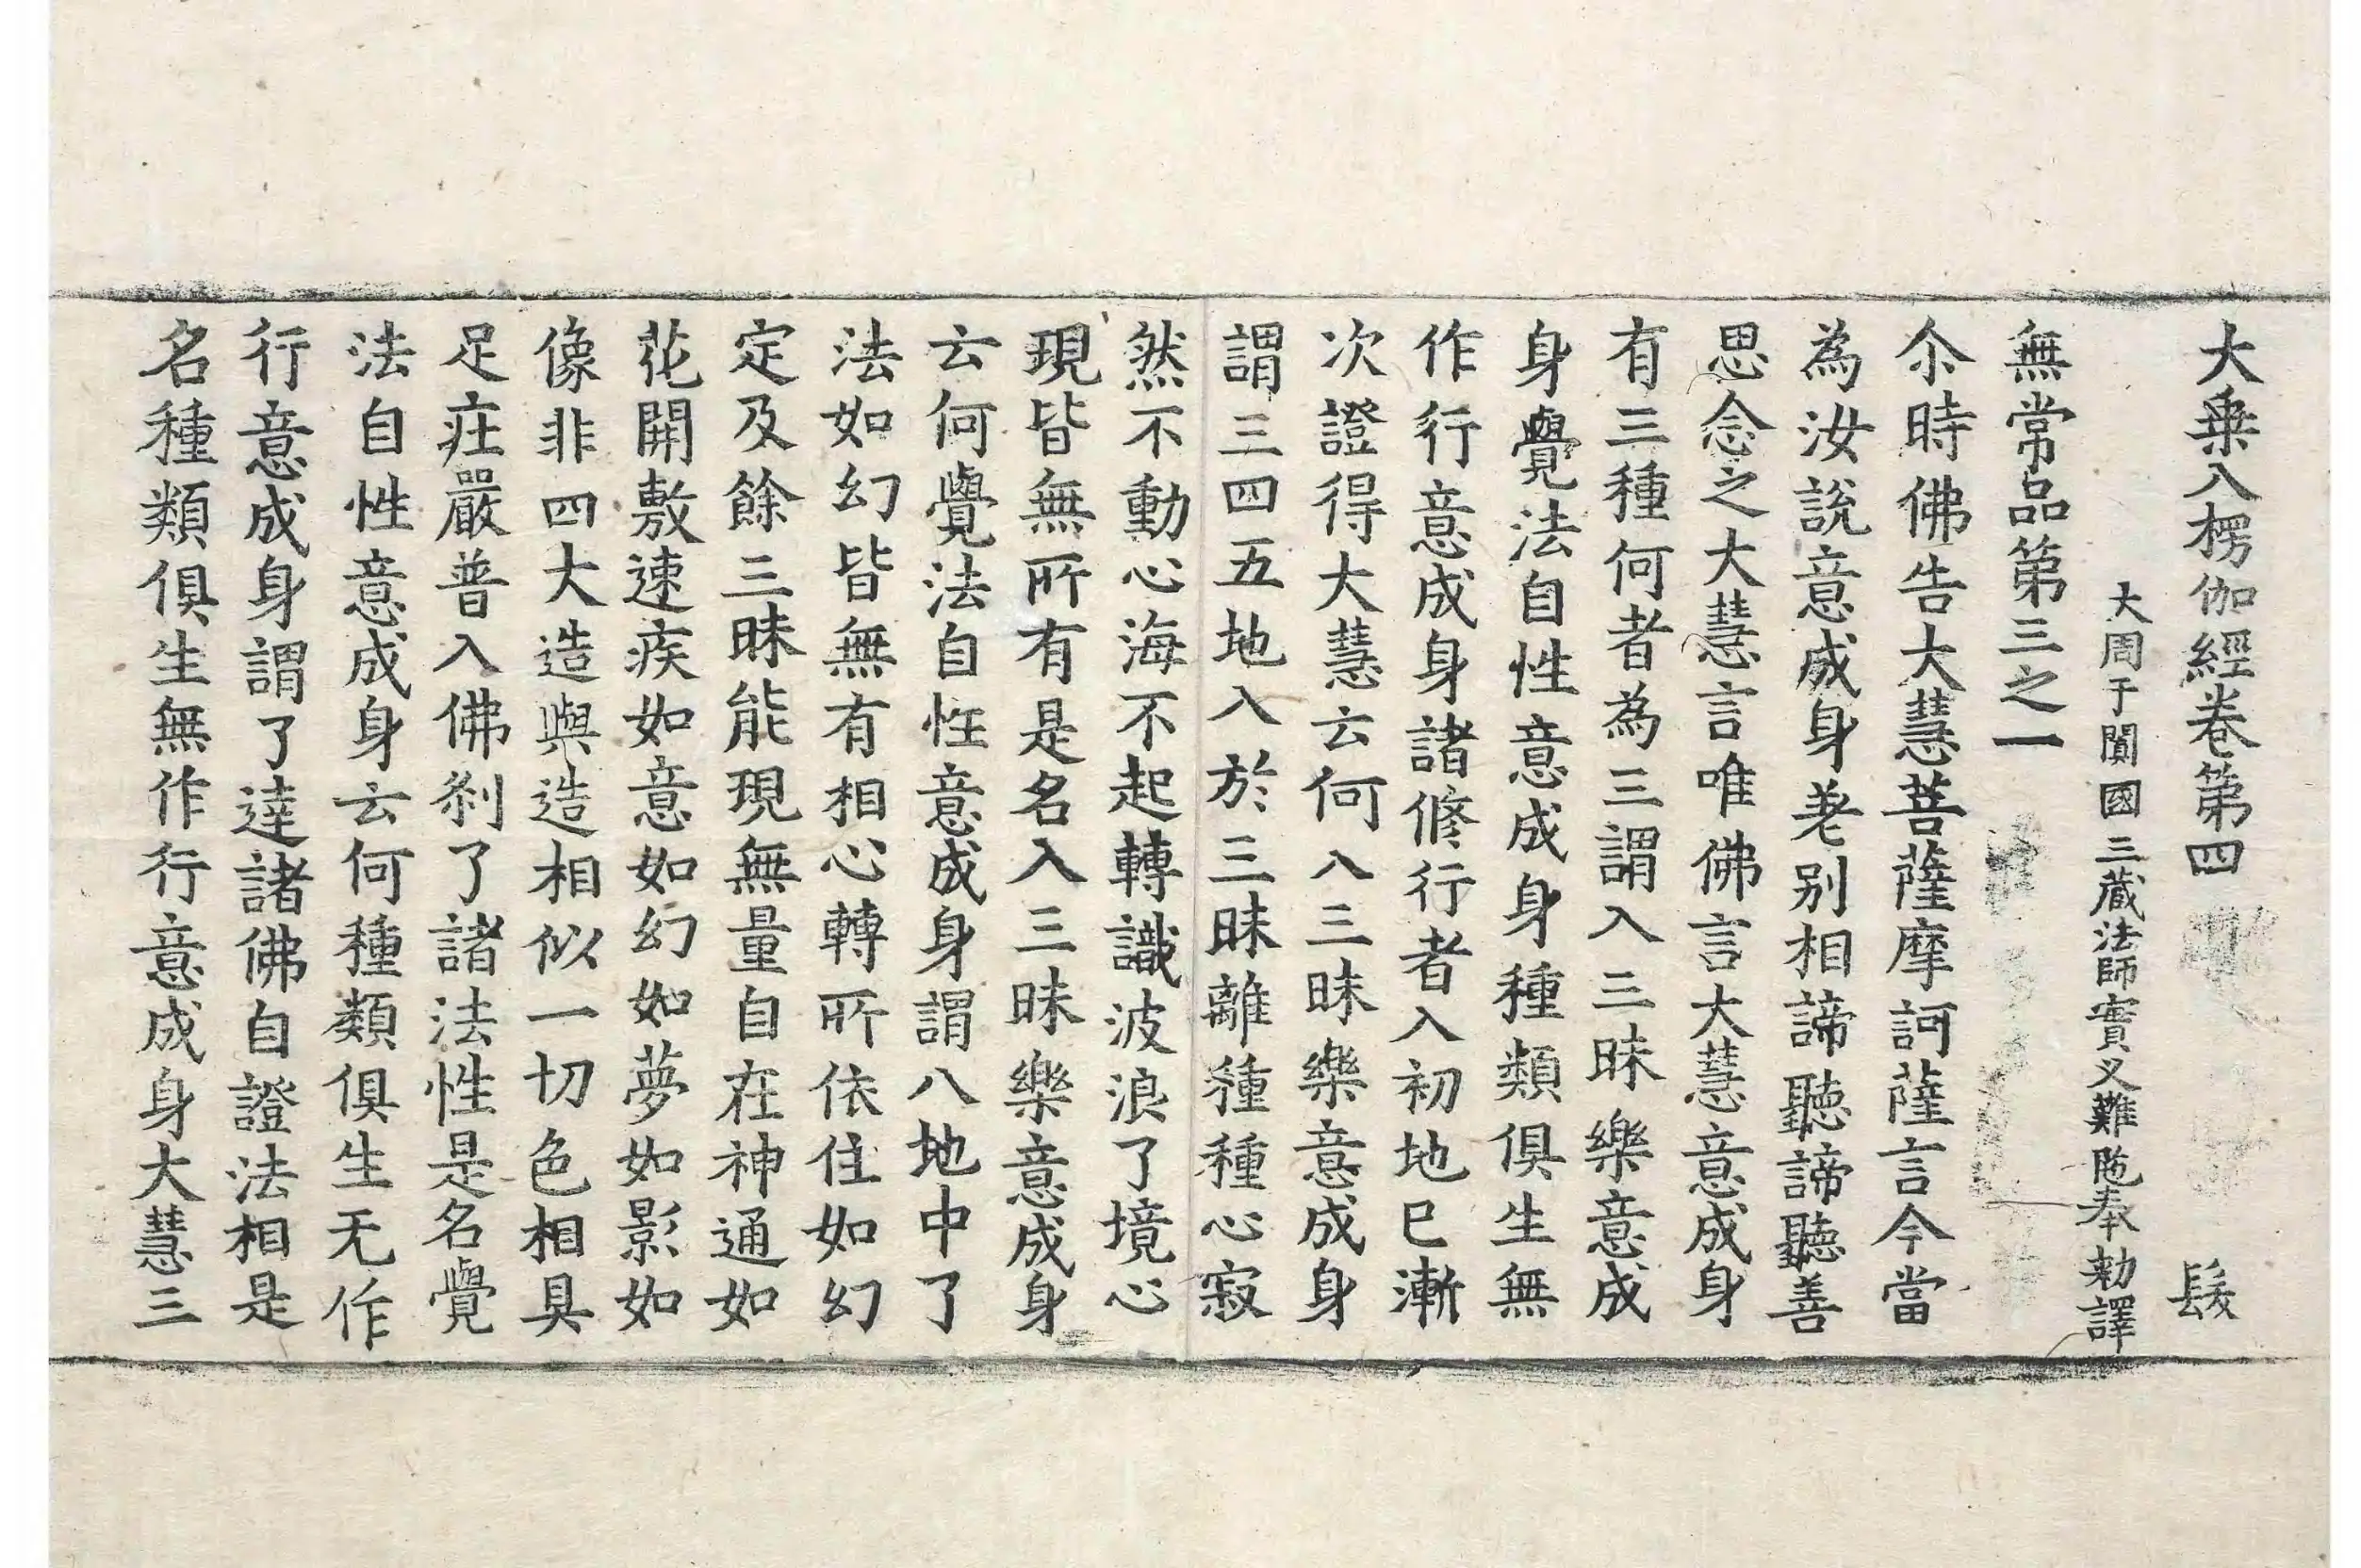 大乗入楞伽經卷第四 髮
大周于闐國三藏法師實叉難陁奉勑譯
無常品第三之一
尒時佛告大慧菩薩摩訶薩言今當
為汝說意成身差别相諦聽諦聽善
思念之大慧言唯佛言大慧意成身
有三種何者為三謂入三昧樂意成
身覺法自性意成身種類俱生無
作行意成身諸修行者入初地已漸
次證得大慧云何入三昧樂意成身
謂三四五地入於三昧離種種心寂
然不動心海不起轉識波浪了境心
現皆無所有是名入三昧樂意成身
云何覺法自性意成身謂八地中了
法如幻皆無有相心轉所依住如幻
定及餘三昧能現無量自在神通如
花開敷速疾如意如幻如夢如影如
像非四大造與造相似一切色相具
足庄嚴普入佛剎了諸法性是名覺
法自性意成身云何種類俱生无作
行意成身謂了達諸佛自證法相是
名種類俱生無作行意成身大慧三